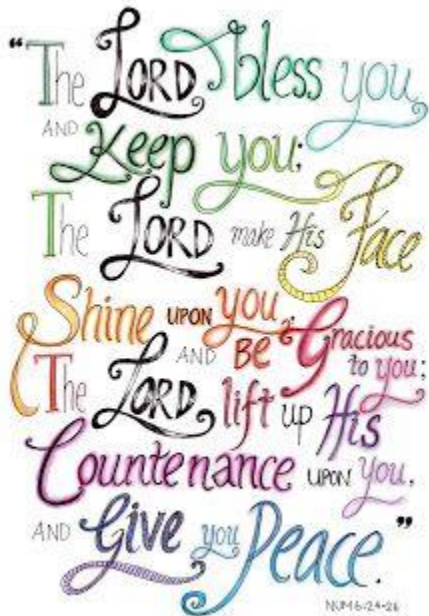 “The LORD bless you,
AND Keep you;
The LORD make His Face
Shine UPON you,
AND BE Gracious
to you;
The LORD lift up His
Countenance UPON you,
AND Give you Peace.”
NUM 6:24-26